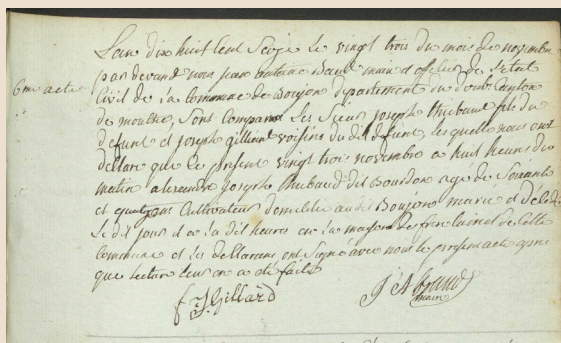 L'an dix huit cent seize le vingt trois du mois de novembre
par devant nous jean antoine maire officier de l'etat
6me acte
Civil de la commune de Boujon département du doubs Canton
de mouthe, sont comparu les sieur joseph thiebaud fils du
defunt et joseph gilliard voisins du dit defunt, les quelle nous ont
déllaré que le présent vingt trois novembre a huit heures du
matin alexandre joseph thiebaud dit Bourdon age de soixante
et ans Cultivateur domicilie au dit Boujons marié est décédé
le dit jour a la dit heures en la maison de cette
commune et les déllarans ont signé avec nous le present acte apres
que lecture leur en a été faite
f J Gillard
J A
maire